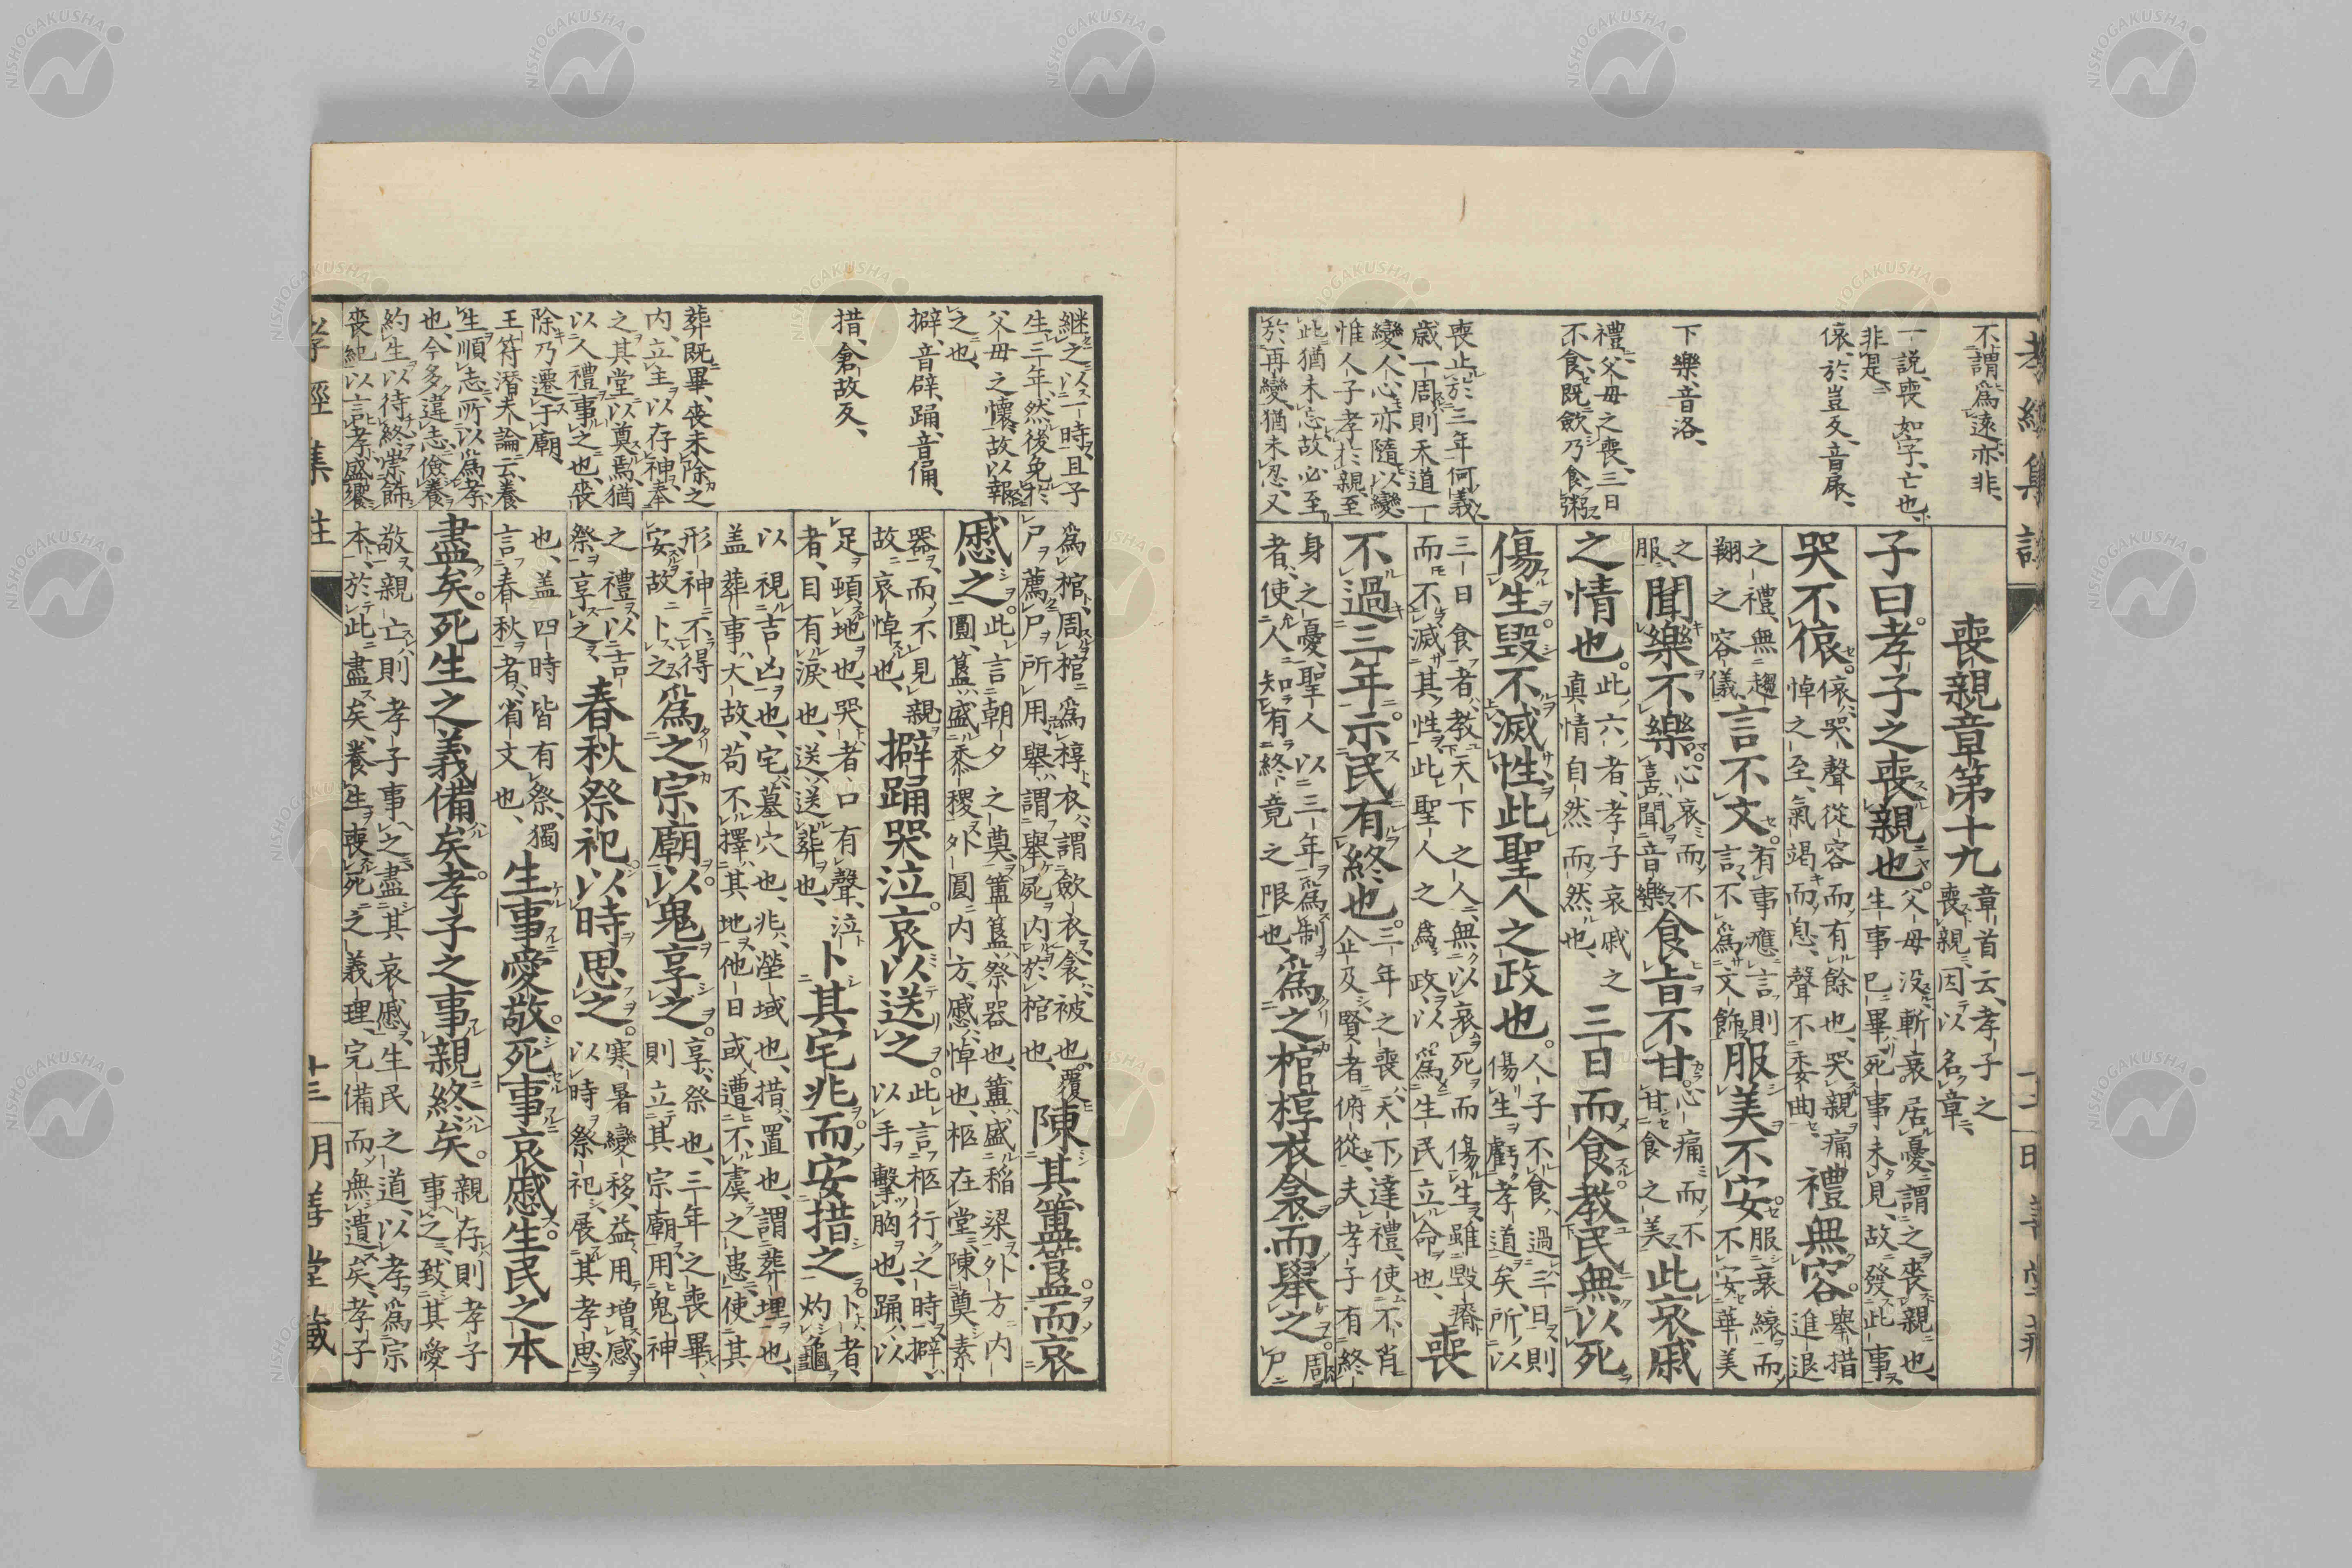 孝經集註
十二
明善堂藏
不謂爲遠亦非、
一説、喪如字、亡也、
非是、
偯、於豈反、音扆、
下樂、音洛、
禮、父母之喪、三日
不食、既飲乃食粥、
喪止於三年何義、
歳一周則天道一
變、人心亦隨以變、
惟人子孝於親、至
此猶未忘故必至
於再變、猶未忍、又
喪親章第十九
章首云、孝子之
喪親、因以名章、
子曰。孝子之喪親也。
父母没、斬衰居憂、謂之喪親也、
生事已畢、死事未見、故發此事
哭不偯。
偯、哭聲從容而有餘也、哭親痛
悼之至、氣竭而息、聲不委曲、
禮無容。
舉措
進退
之禮、無趨
翔之容儀、
言不文。
有事應言、則
言不爲文飾
服美不安。
服衰縗而
不安華美
之
服、
聞樂不樂。
心哀而不
喜聞音樂
食旨不甘。
心痛而不
甘食之美
此哀戚
之情也。
此六者、孝子哀戚之
真情自然而然也、
三日而食。教民無以死
傷生毀不滅性此聖人之政也。
人子不食、過三日則
傷生虧孝道矣、所以
三日食者、教天下之人、無以哀死而傷生、雖毀瘠
而不滅其性、此聖人之爲政、以爲生民立命也、
喪
不過三年。示民有終也。
三年之喪、天下達禮、使不肖
企及、賢者俯從、夫孝子有終
身之憂、聖人以三年爲制
者、使人知有終竟之限也、
爲之棺椁衣衾。而舉之。
周
尸
繼之以一時、且子
生三年、然後免於
父母之懷、故以報
之也、
擗、音辟、踊、音俑、
措、倉故反、
葬既畢、喪未除之
内、立主以存神、奉
之其堂以奠焉、猶
以人禮事之也、喪
除乃遷于廟、
王符潜夫論云、養
生順志、所以爲孝
也、今多違志、儉養
約生、以待終、崇飾
喪紀以言孝、盛饗
爲棺、周棺爲椁、衣、謂歛衣、衾、被也、覆
尸薦尸所用、舉、謂舉死内於棺也、
陳其簠簋。而哀
慼之。
此言朝夕之奠、簠簋、祭器也、簠盛稲粱、外方内
圓、簋盛黍稷、外圓内方、慼、悼也、柩在堂、陳奠素
器、而不見親
故哀悼也、
擗踊哭泣。哀以送之。
此言柩行之時、擗、
以手擊胸也、踊、以
足頓地也、哭者、口有聲、泣
者、目有淚也、送、送葬也、
卜其宅兆。而安措之。
卜者、
灼龜
以視吉凶也、宅、墓穴也、兆、塋域也、措、置也、謂葬埋也、
蓋葬事大故、苟不擇其地、他日或遭不虞之患、使其
形神不得
安故卜之
爲之宗廟。以鬼享之。
享、祭也、三年之喪畢、
則立其宗廟、用鬼神
之禮、以吉
祭享之、
春秋祭祀。以時思之。
寒暑變移、益用増感、
以時祭祀、展其孝思
也、蓋四時皆有祭、獨
言春秋者、省文也、
生事愛敬。死事哀慼。生民之本
盡矣。死生之義備矣。孝子之事親終矣。
親存、則孝子
事之、致其愛
敬、親亡、則孝子事之、盡其哀慼、生民之道、以孝爲宗
本、於此盡矣、養生喪死之義理、完備而無遺矣、孝子
孝經集註
十三
明善堂藏
NISHOGAKUSHA